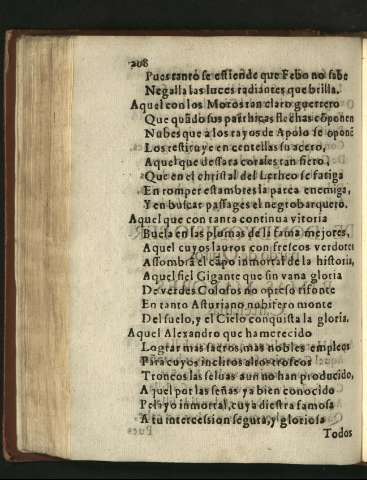 208
Pues tanto se estiende que Febo no sabe
Negalla las luces radiantes que brilla.
Aquel con los Moros tan claro guerrero
Que quãdo sus parthicas flechas cõponen
Nubes que a los rayos de Apolo se oponẽ
Los restituye en centellas su acero,
Aquel que desata corales tan fiero,
Que en el christal del Letheo se fatiga
En romper estambres la parca enemiga,
Y en buscar passages el negro barquero.
Aquel que con tanta continua vitoria
Buela en las plumas de la fama mejores,
Aquel cuyos lauros con frescos verdores
Assombrã el cãpo inmortal de la historia,
Aquel fiel Gigante que sin vana gloria
De verdes Colosos no opreso
En tanto Asturiano nubifero monte
Del suelo, y el Cielo conquista la gloria.
Aquel Alexandro que ha merecido
Lograr mas sacros, mas nobles empleos
Para cuyos inclitos altos trofeos
Troncos las seluas aun no han producido,
Aquel por las señas ya bien conocido
Pelayo inmortal, cuya diestra famosa
A tu intercession segura, y gloriosa
Todos